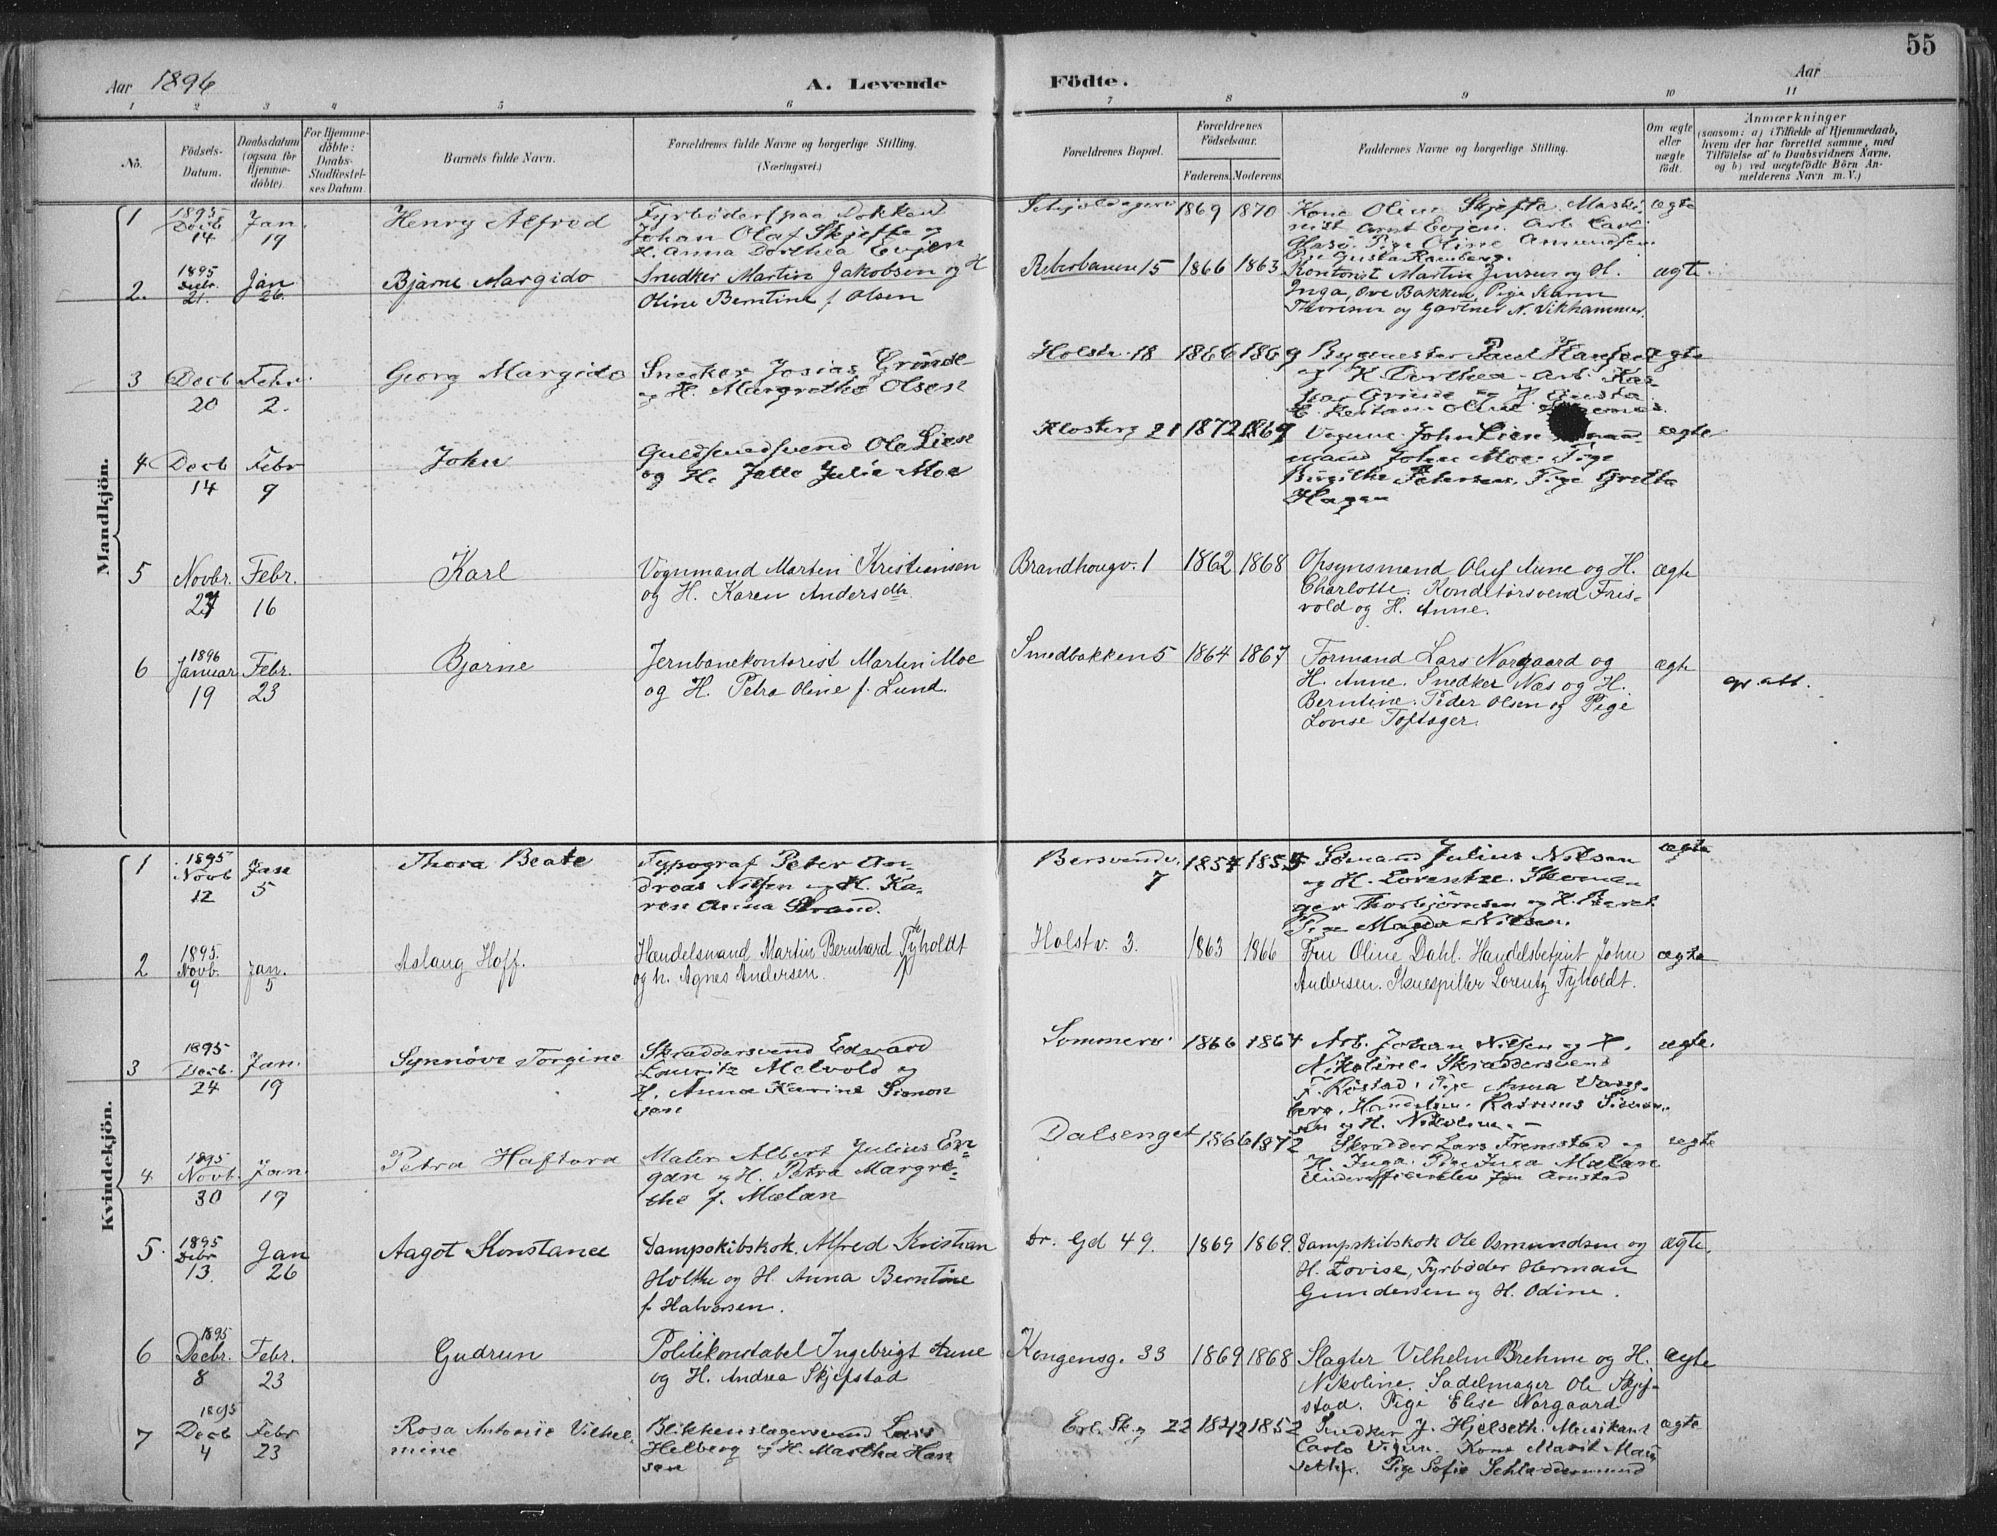 55
Aar 1896 A. Levende Födte. Aar
1 2 3 4 5 6 7 8 9 10 11
No. Födsels-Datum. Daabsdatum (ogsaa for Hjemmedöbte). For Hjemmedöbte: Daabs-Stadfæstelses Datum. Barnets fulde Navn. Forældrenes fulde Navne og borgerlige Stilling. (Næringsvei.) Forældrenes Bopæl. Forældrenes Födselsaar. Faderens. Moderens. Faddernes Navne og borgerlige Stilling. Om ægte eller uægte födt. Anmærkninger (saasom: a) i Tilfælde af Hjemmedaab, hvem der har forrettet samme, med Tilföielse af to Daabsvidners Navne, og b) ved uægtefödte Börn Anmelderens Navn m. V.)
Mandkjön.
1 1895 Decb 14 Jan. 19 Henry Alfred
Fyrbøder (paa Dokken)
Johan Olaf Skjefte og
H. Anna Dorthea Evjen
1869 1870
Kone Oline Skjefte. Maski-
nist Arnt Evjen. Arb. Carl
Pige Oline Amundsen.
ægte
2. 1895 Decbr. 21. Jan 26 Bjarne Margido
Snedker Martin Jakobsen og H
Oline Berntine f. Olsen
15 1866 1863
Kontorist Martin Jensen og H.
Inga, Ove Bakken, Pige Karen
Thoresen og Gartner N. Vikhammer.
ægte.
3 Decb 20 Febr. 2. Georg Margido
Snedker Josias Grinde
og H. Margrethe Olsen
Holstv. 18 1866 1869
Bygmester Paul Hanssen
og H. Dorthea. Arb. Kas-
par Grinde og H.
ægte
4. Decb 14 Febr 9 John
Guldsmedsvend Ole Lien
og H. Jette Julie Moe
Klosterg 21 1872 1869
Vognm. John Lien
mand John Moe. Pige
Birgithe Petersen. Pige Gretha
Hagen
ægte
5 Novbr. 27 Febr. 16 Karl
Vognmand Martin Kristiansen
og H. Karen Andersdtr.
Brandhougv. 1 1862 1868
Opsynsmand Oluf Aune og H.
Charlotte. Konditorsvend Fris-
vold og H. Anne.
ægte
6 1896 Januar 19 Febr. 23 Bjarne
Jernbanekontorist Martin Moe
og H. Petra Oline f. Lund.
Smedbakken 5 1864 1867
Formand Lars Norgaard og
H. Anne. Snedker Næs og H.
Berntine. Peder Olsen og Pige
Lovise Toftager.
ægte
gr. att.
Kvindekjön.
1 1895 Novb 12 Jan 5 Thora Beate
Typograf Peter An-
dreas Nilsen og H. Ka-
ren Anna Strand.
Bersvendv. 7 1854 1855
Sömand Julius Nilsen
og H. Lorentze. Skoma-
ger Thorbjörnsen og H. Beret.
Pige Magda Nilsen.
ægte
2 1895. Novb. 9 Jan. 5 Aslaug Hoff.
Handelsmand Martin Bernhard Tyholdt
og h. Agnes Andersen.
Holstv. 3. 1863 1866
Fru Oline Dahl. Handelsbetjent John
Andersen. Skuespiller Lorentz Tyholdt.
ægte
3 1895 Decb. 24 Jan. 19 Synnöve Torgine
Skræddersvend Edvard
Lauritz Melvold og
H. Anna Karine Simon
sen
Sommerv. 1866 1867
Arb. Johan Nilsen og H.
Nikoline. Skræddersvend
F. Röstad. Pige Anna Vang-
berg. Rasmus Simon-
sen og H. Nikoline. –
ægte.
4. 1895 Novb. 30 Jan. 19 Petra Haftora
Maler Albert Julius Er-
gan og H. Petra Margre-
the f. Mælan
Dalsenget 1866 1872
Skrædder Lars Fremstad og
H. Inga. Pige Inga Mælan
Underoffiserelev Arnstad
ægte
5. 1895 Decbr 13. Jan 26 Aagot Konstance
Dampskibskok Alfred Kristian
Holthe og H. Anna Berntine
f. Halvorsen.
Dr. Gd 49. 1869 1869.
Dampskibskok Ole Osmundsen og
H. Lovise, Fyrbøder Herman
Gundersen og H. Odine.
ægte.
6 1895 Decbr. 8 Febr. 23 Gudrun
Politikonstabel Ingebrigt Aune
og H. Andrea Skjefstad
Kongensg. 33 1869 1868
Slagter Vilhelm Brehme og H.
Nikoline. Sadelmager Ole Skjef-
stad. Pige Elise Norgaard.
ægte
7 1895 Decb 4 Febr 23 Rosa Antonie Vilhel-
mine
Blikkenslagersvend Lars
Helberg og H. Martha Han
sen
Erl. Sk.g 22 1842 1852
Snedker J. Hjelseth. Musikant
Carlo Vigen. Kone Marit
Pige Sofie
ægte